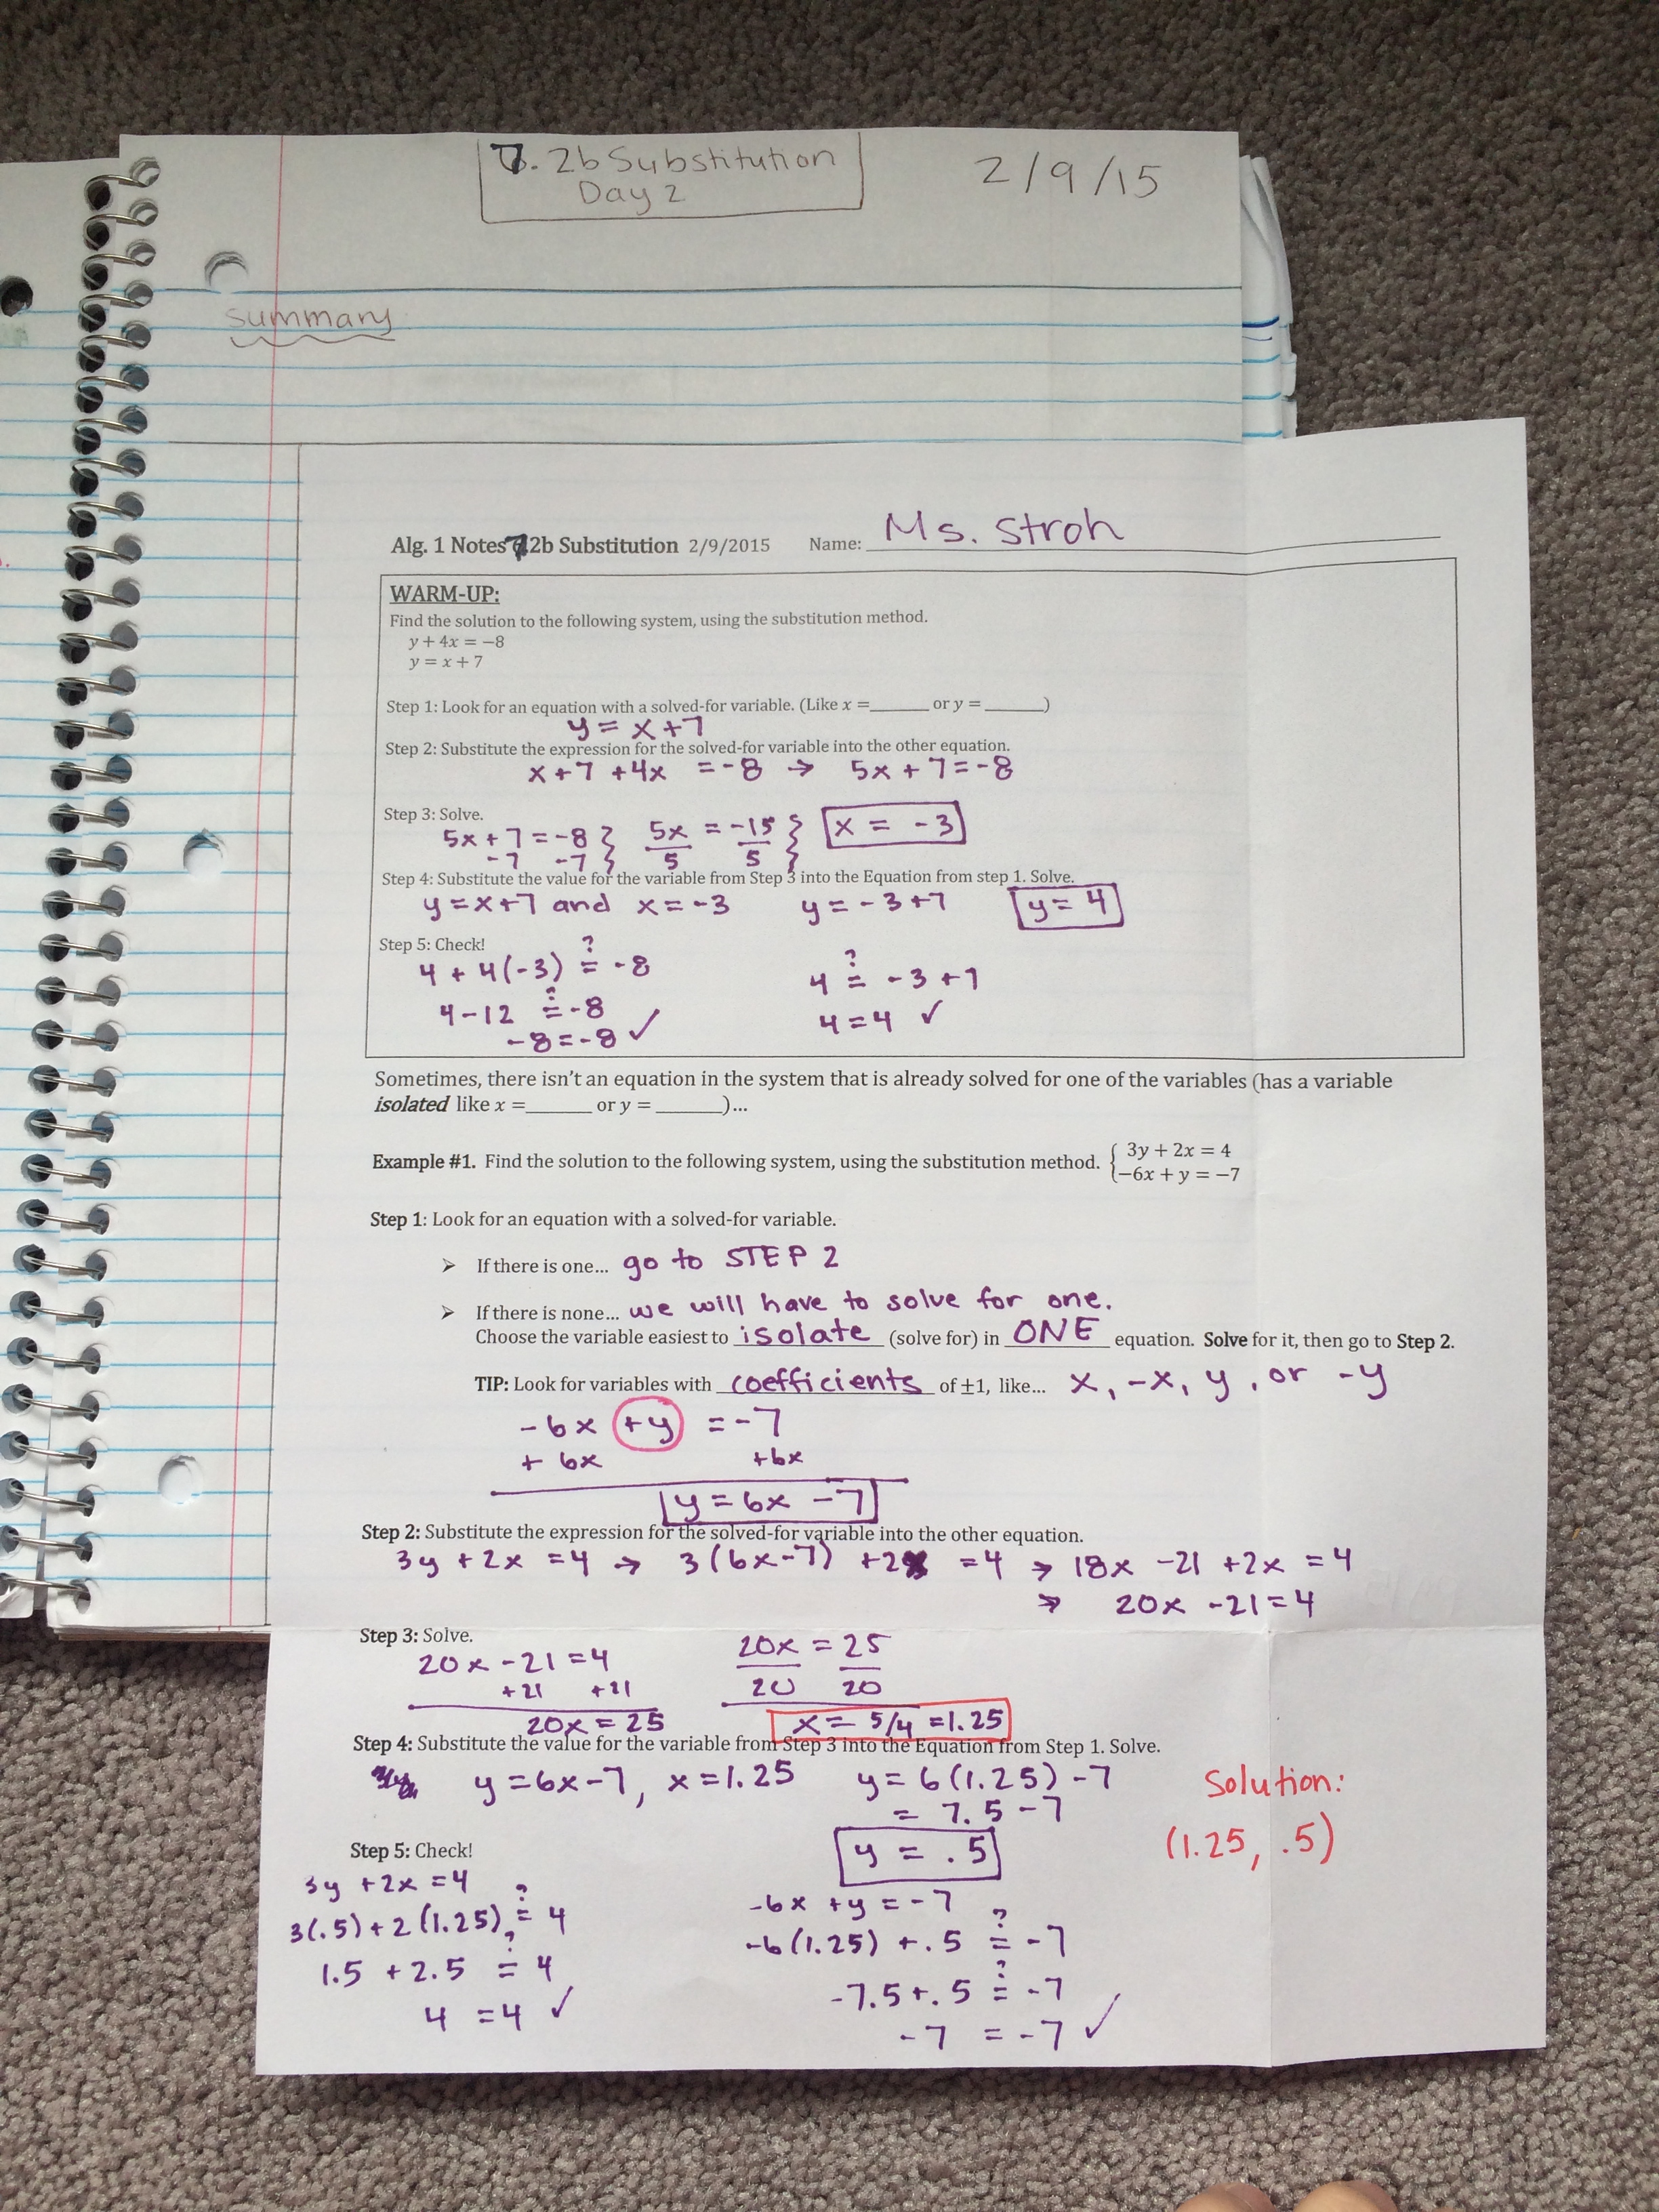 7.2b Substitution
Day 2
2/9/15
summary
Alg. 1 Notes 7.2b Substitution 2/9/2015 Name: Ms. Stroh
WARM-UP:
Find the solution to the following system, using the substitution method.
y + 4x = −8
y = x + 7
Step 1: Look for an equation with a solved-for variable. (Like x =______ or y = ______)
y = x + 7
Step 2: Substitute the expression for the solved-for variable into the other equation.
x + 7 + 4x = -8 → 5x + 7 = -8
Step 3: Solve.
5x + 7 = -8 } 5x = -15 } x = -3
-7 -7 5 5
Step 4: Substitute the value for the variable from Step 3 into the Equation from step 1. Solve.
y = x + 7 and x = -3 y = -3 + 7 y = 4
Step 5: Check!
4 + 4(-3) ≟ -8 4 ≟ -3 + 7
4 - 12 ≟ -8 4 = 4 ✓
-8 = -8 ✓
Sometimes, there isn't an equation in the system that is already solved for one of the variables (has a variable
isolated like x =_______ or y = _______)...
Example #1. Find the solution to the following system, using the substitution method. { 3y + 2x = 4
−6x + y = −7
Step 1: Look for an equation with a solved-for variable.
➢ If there is one... go to STEP 2
➢ If there is none... we will have to solve for one.
Choose the variable easiest to isolate (solve for) in ONE equation. Solve for it, then go to Step 2.
TIP: Look for variables with coefficients of ±1, like... x, -x, y, or -y
-6x + y = -7
+ 6x +6x
y = 6x - 7
Step 2: Substitute the expression for the solved-for variable into the other equation.
3y + 2x = 4 → 3(6x-7) + 2x = 4 → 18x - 21 + 2x = 4
→ 20x - 21 = 4
Step 3: Solve.
20x - 21 = 4 20x = 25
+21 +21 20 20
20x = 25 x = 5/4 = 1.25
Step 4: Substitute the value for the variable from Step 3 into the Equation from Step 1. Solve.
y = 6x - 7, x = 1.25 y = 6(1.25) - 7
= 7.5 - 7
y = .5
Solution:
(1.25, .5)
Step 5: Check!
3y + 2x = 4
3(.5) + 2(1.25) ≟ 4
1.5 + 2.5 ≟ 4
4 = 4 ✓
-6x + y = -7
-6(1.25) + .5 ≟ -7
-7.5 + .5 ≟ -7
-7 = -7 ✓